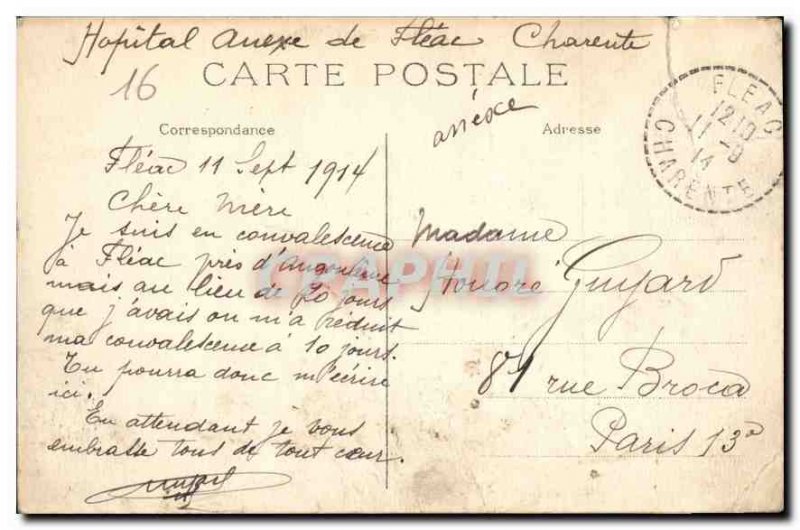 Hopital Anexe de Fléac Charente
16
CARTE POSTALE
annéxe
Correspondance
Adresse
FLEAC
12 10
11 -9
14
CHARENTE
Fléac 11 Sept 1914
Chère Mère
Je suis en convalescence
à Fléac près d'Angouleme
mais au lieu de 20 jours
que j'avais on m'a réduit
ma convalescence à 10 jours.
Tu pourra donc m'écrire
ici.
En attendant je vous
embrasse tous de tout cœur.
Madame
Honoré Guyard
81 rue Broca
Paris 13e
CPAPHIL